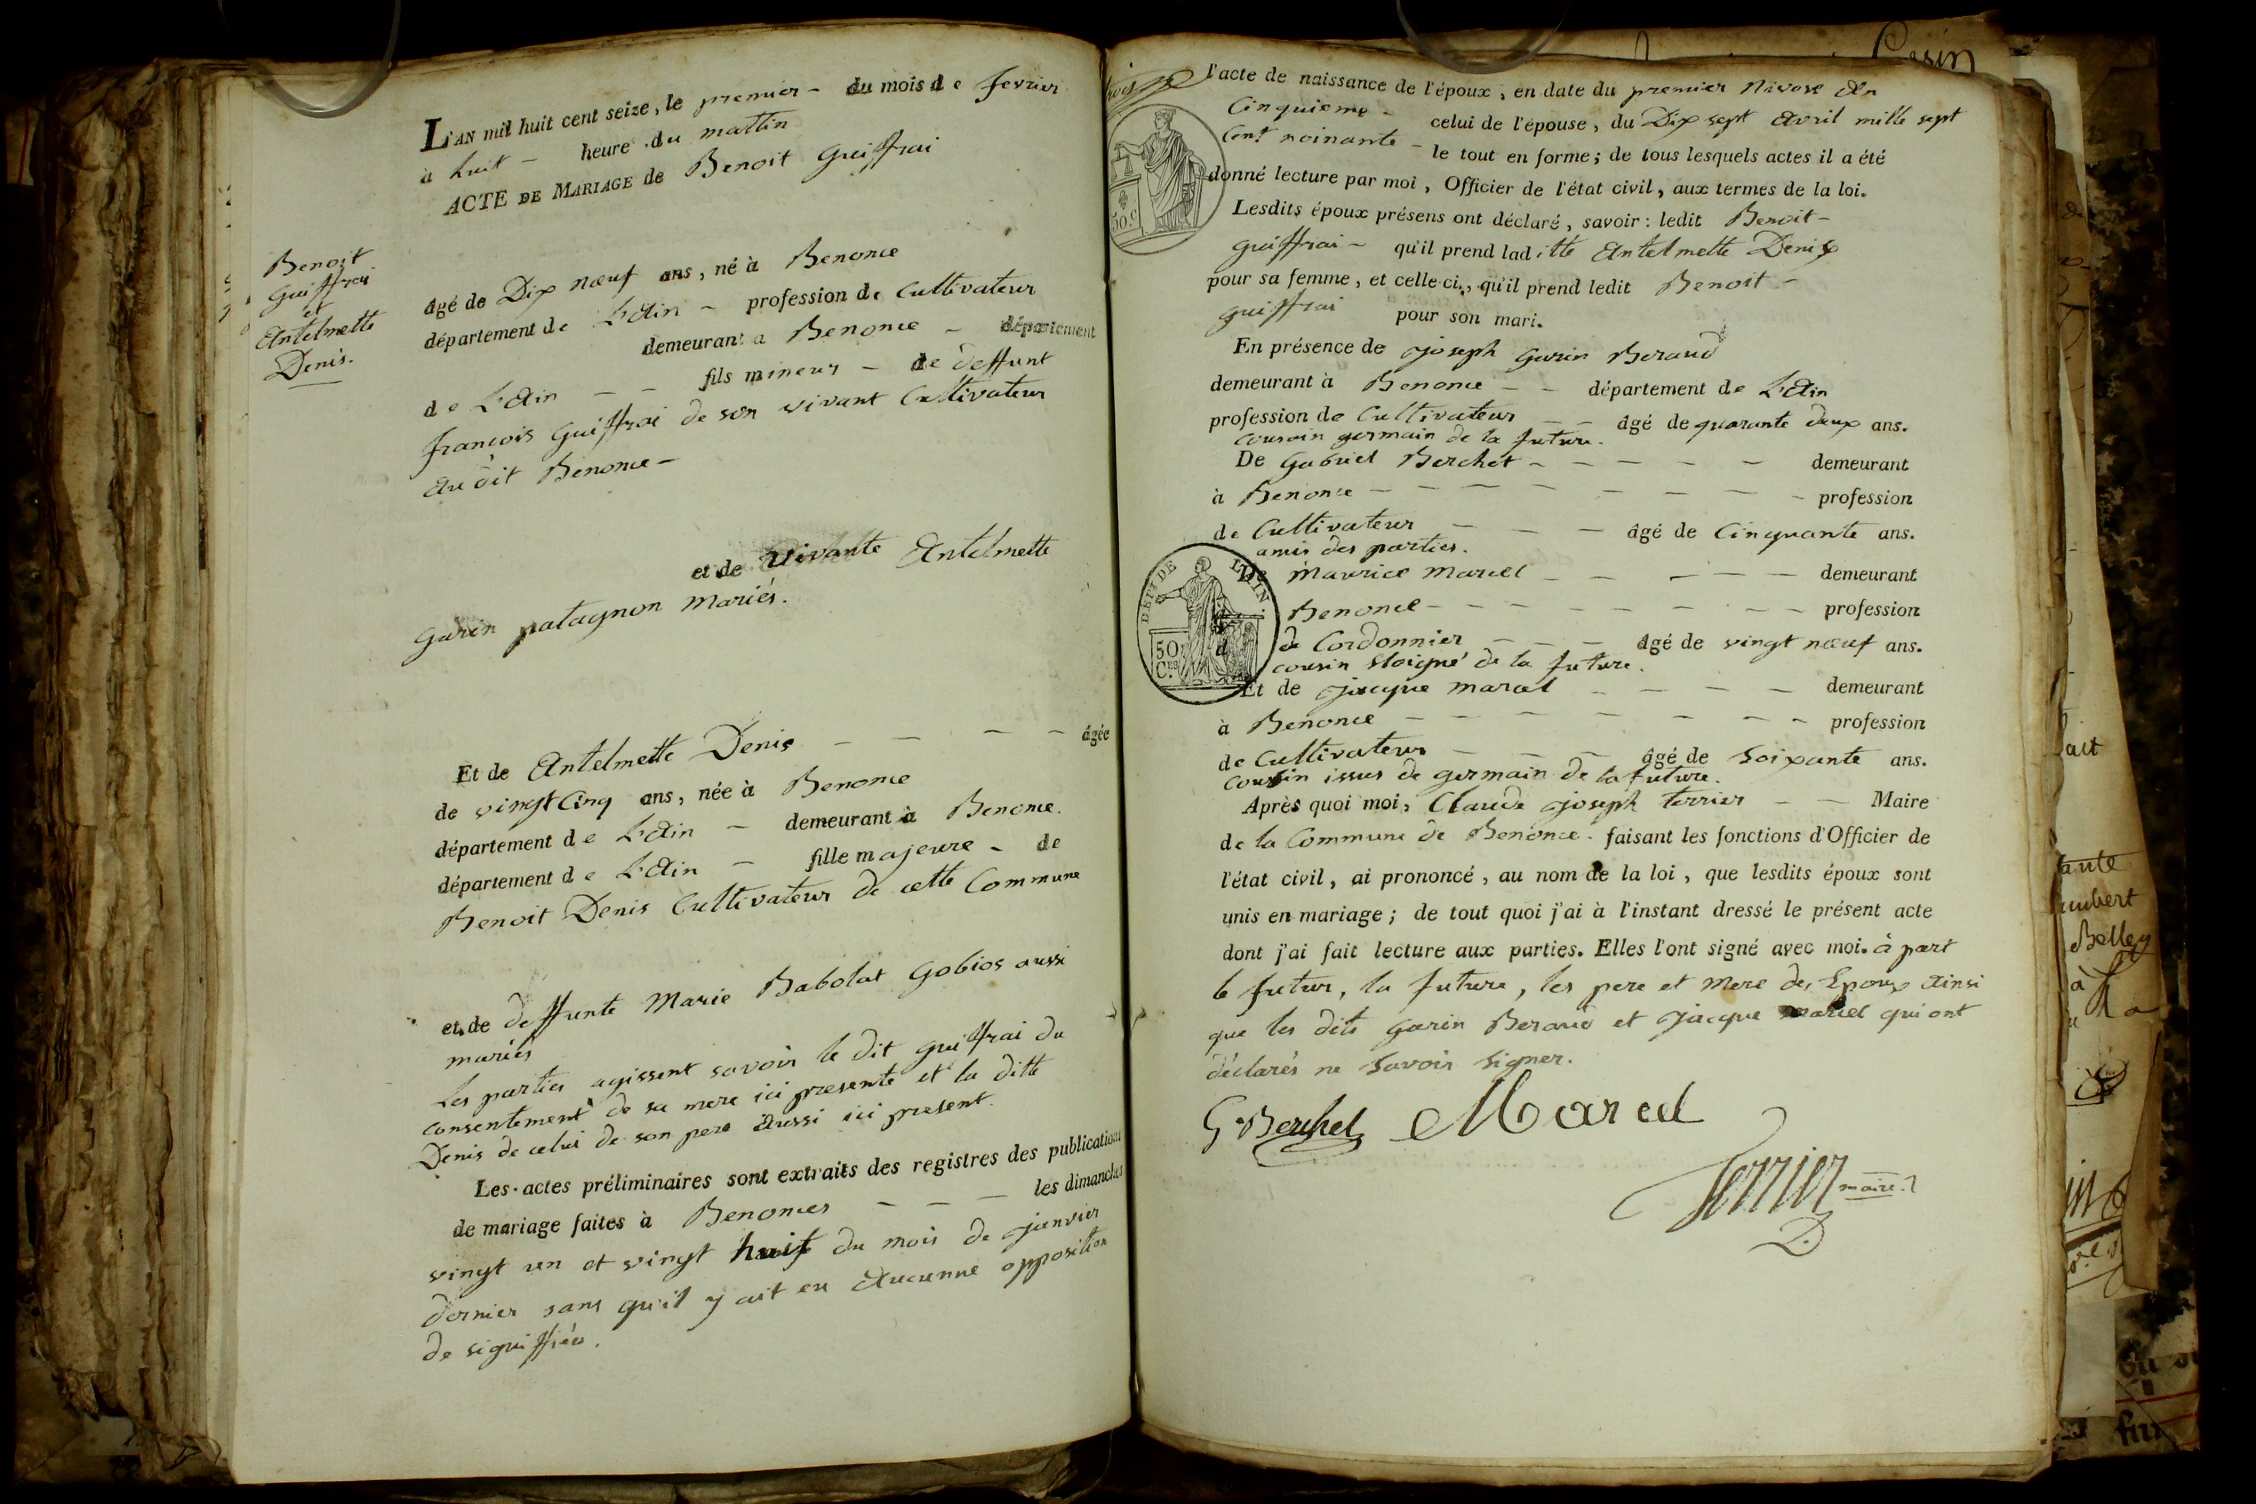 L'AN mil huit cent seize, le premier - du mois de fevrier
à huit - heure du mattin
ACTE DE MARIAGE de Benoit Guiffrai
Benoit
Guiffrai
et
Antelmette
Denis.
âgé de Dix nœuf ans, né à Benonce
département de L'Ain - profession de Cultivateur
demeurant a Benonce - département
de L'Ain - - fils mineur - de deffunt
françois Guiffrai de son vivant Cultivateur
au dit Benonce -
et de vivante Antelmette
Garin patagnon mariés.
Et de Antelmette Denis - - - - âgée
de vingt Cinq ans, née à Benonce
département de L'Ain - demeurant à Benonce.
département de L'Ain - fille majeure - de
Benoit Denis Cultivateur de cette Commune
et de deffunte Marie Babolat Gobios aussi
mariés
Les parties agissent savoir le dit Guiffrai du
consentement de sa mere ici presente et la ditte
Denis de celui de son pere aussi ici present.
Les actes préliminaires sont extraits des registres des publications
de mariage faites à Benonces - - - les dimanches
vingt un et vingt huit du mois de janvier
dernier sans qu'il y ait eu Aucunne opposition
de signiffiée.
l'acte de naissance de l'époux, en date du premier Nivose An
Cinquieme - celui de l'épouse, du Dix sept Avril mille sept
Cent noinante - le tout en forme; de tous lesquels actes il a été
donné lecture par moi, Officier de l'état civil, aux termes de la loi.
Lesdits époux présens ont déclaré, savoir: ledit Benoit -
Guiffrai - qu'il prend laditte Antelmette Denis
pour sa femme, et celle-ci, qu'il prend ledit Benoit -
Guiffrai pour son mari.
En présence de joseph Garin Beraud
demeurant à Benonce - - département de L'Ain
profession de Cultivateur - - âgé de quarante deux ans.
cousin germain de la future.
De Gabriel Berchet - - - - - demeurant
à Benonce - - - - - - - - profession
de Cultivateur - - - âgé de Cinquante ans.
amis des parties.
DEPT DE L'AIN.
50 C.es
50 c.
De Maurice Marcel - - - - - demeurant
Benonce - - - - - - - - profession
de Cordonnier - - - âgé de vingt nœuf ans.
cousin éloigné de la future.
Et de jacque marcel - - - - demeurant
à Benonce - - - - - - - - profession
de Cultivateur - - - âgé de Soixante ans.
cousin issus de germain de la future.
Après quoi moi, Claude joseph Terrier - - Maire
de la Commune de Benonce - faisant les fonctions d'Officier de
l'état civil, ai prononcé, au nom de la loi, que lesdits époux sont
unis en mariage; de tout quoi j'ai à l'instant dressé le présent acte
dont j'ai fait lecture aux parties. Elles l'ont signé avec moi. à part
le futur, la future, les pere et mere des Epoux ainsi
que les dits Garin Beraud et jacque marcel qui ont
déclarés ne savoir signer.
G. Berchet Marcel
Terrier maire